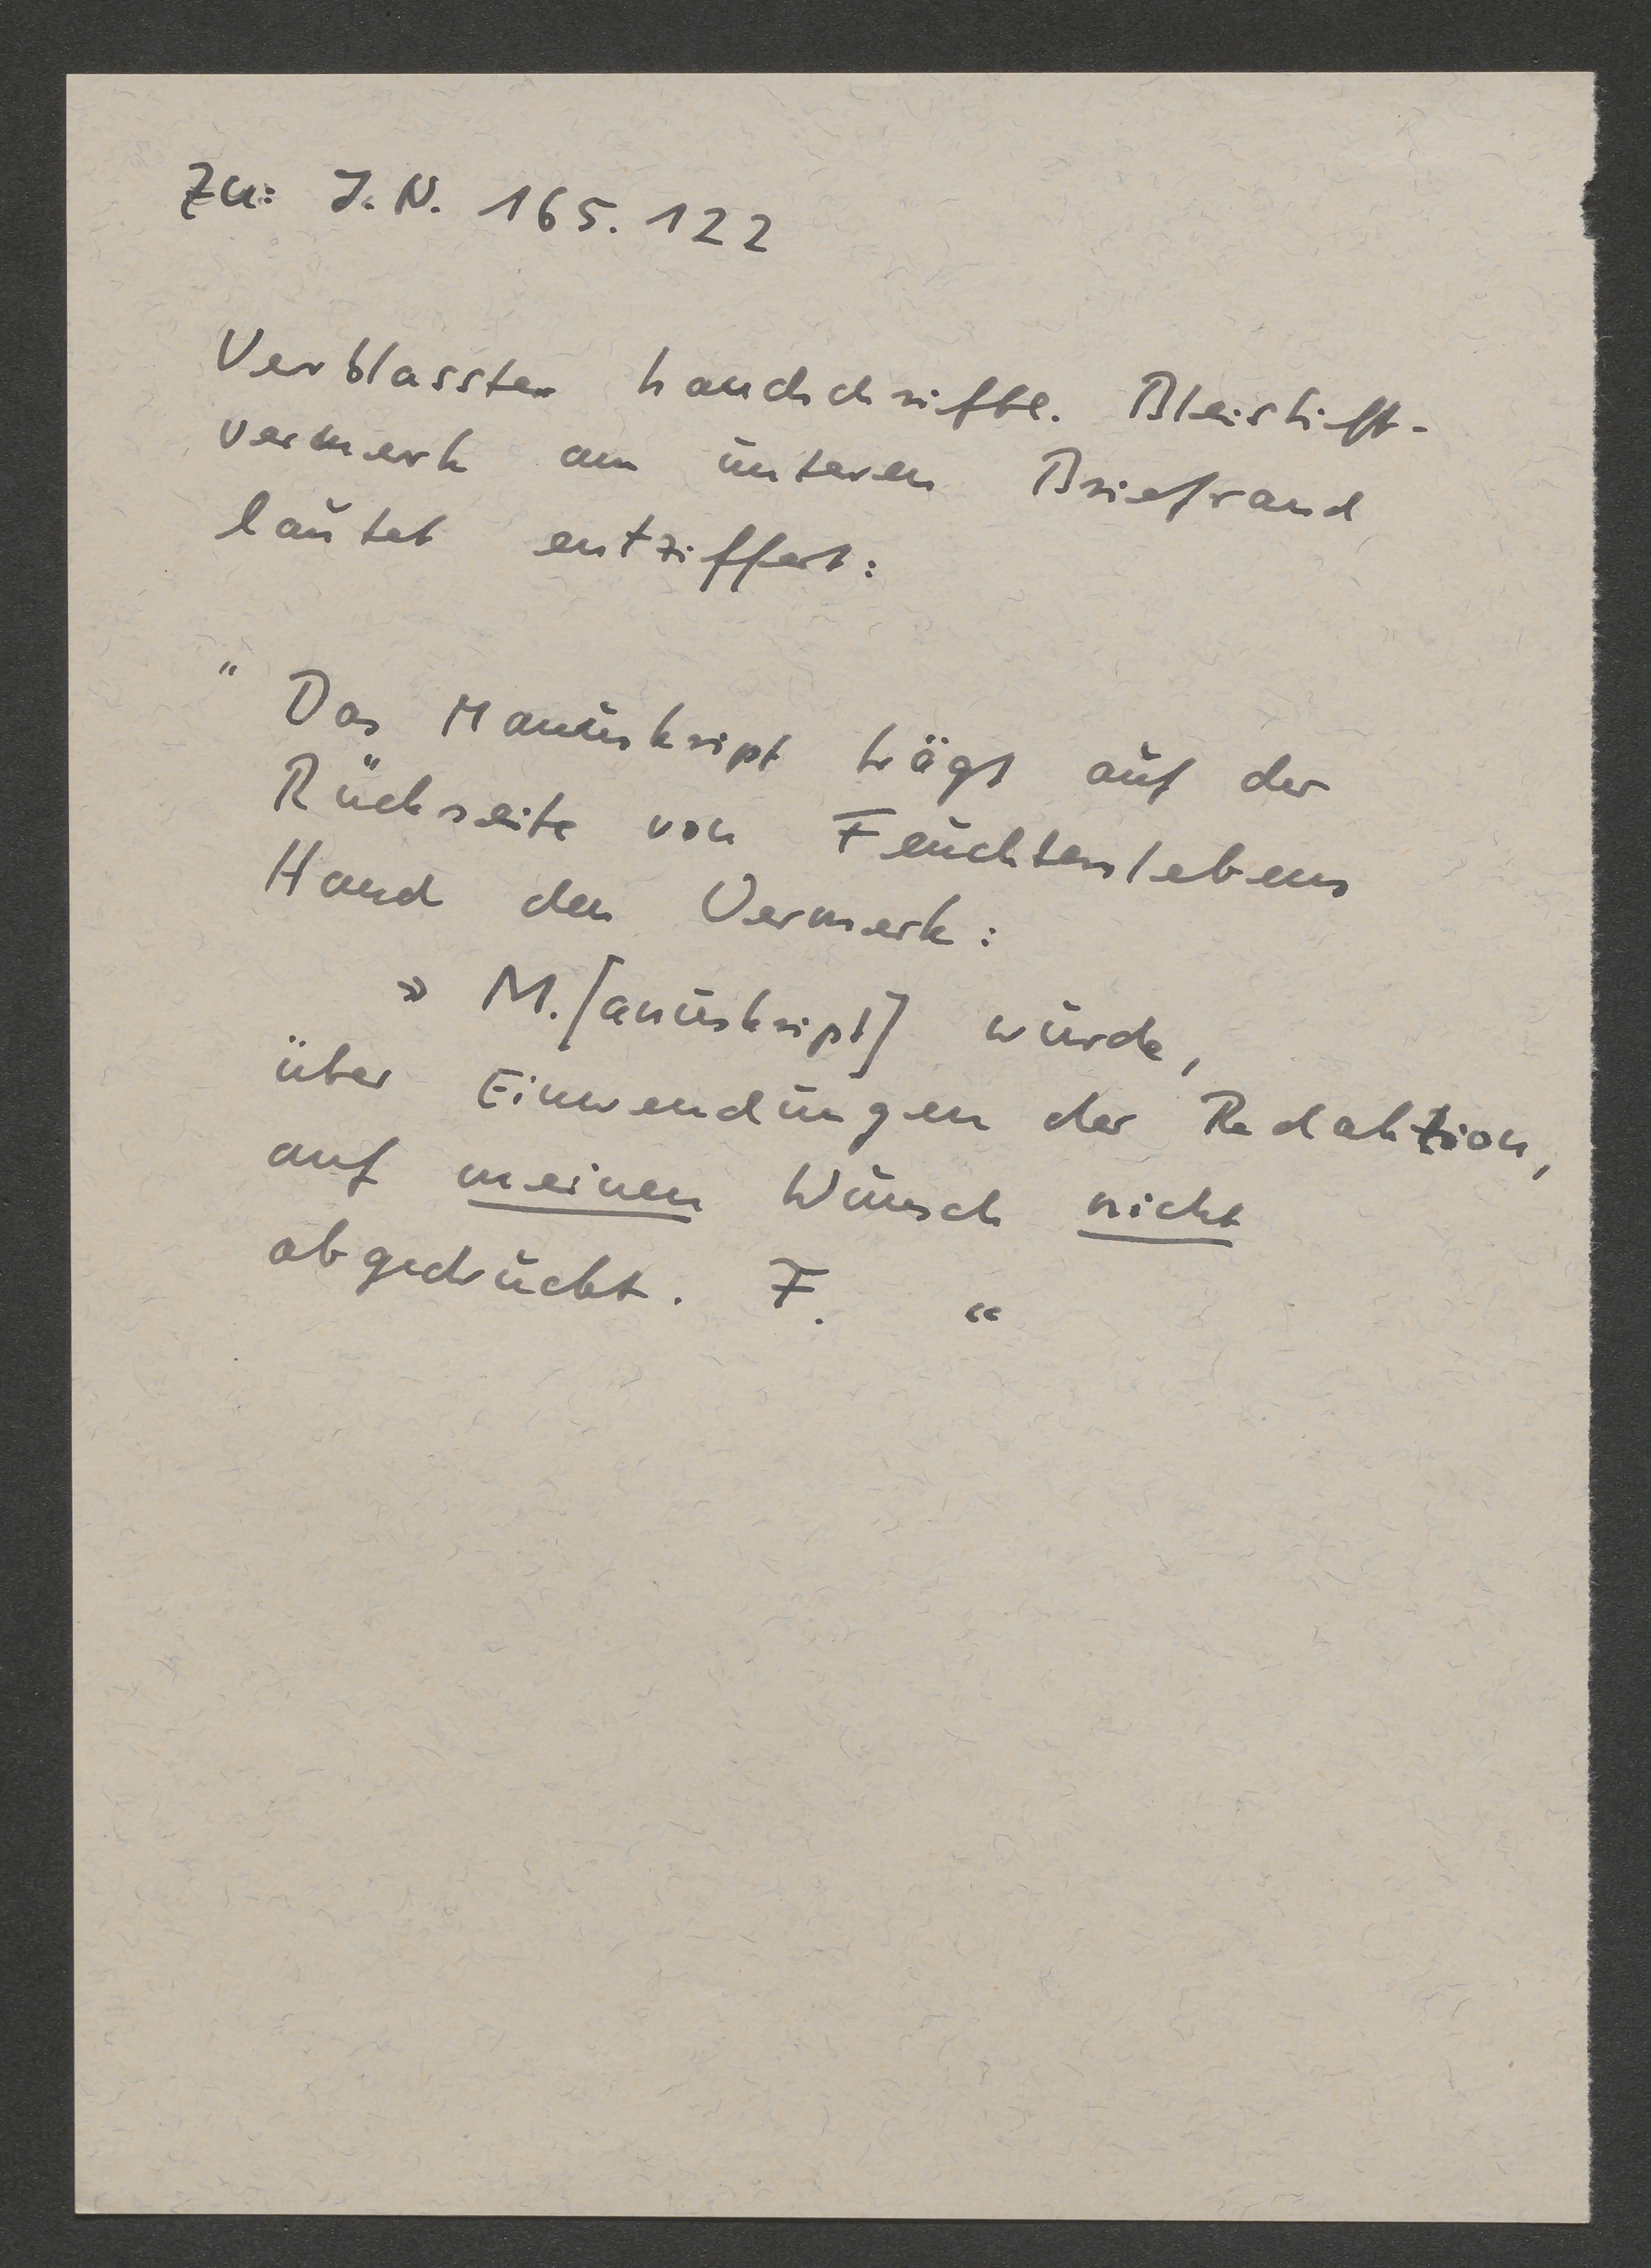 Zu: I. N. 165. 122
Verblasster handschriftl. Bleistift-
vermerk am unteren Briefrand
lautet entziffert:
" Das Manuskript trägt auf der
Rückseite von Feuchtersleben
Hand den Vermerk:
» M.[anuskript] wurde,
über Einwendungen der Redaktion,
auf meinen Wunsch nicht
abgedruckt. F. “